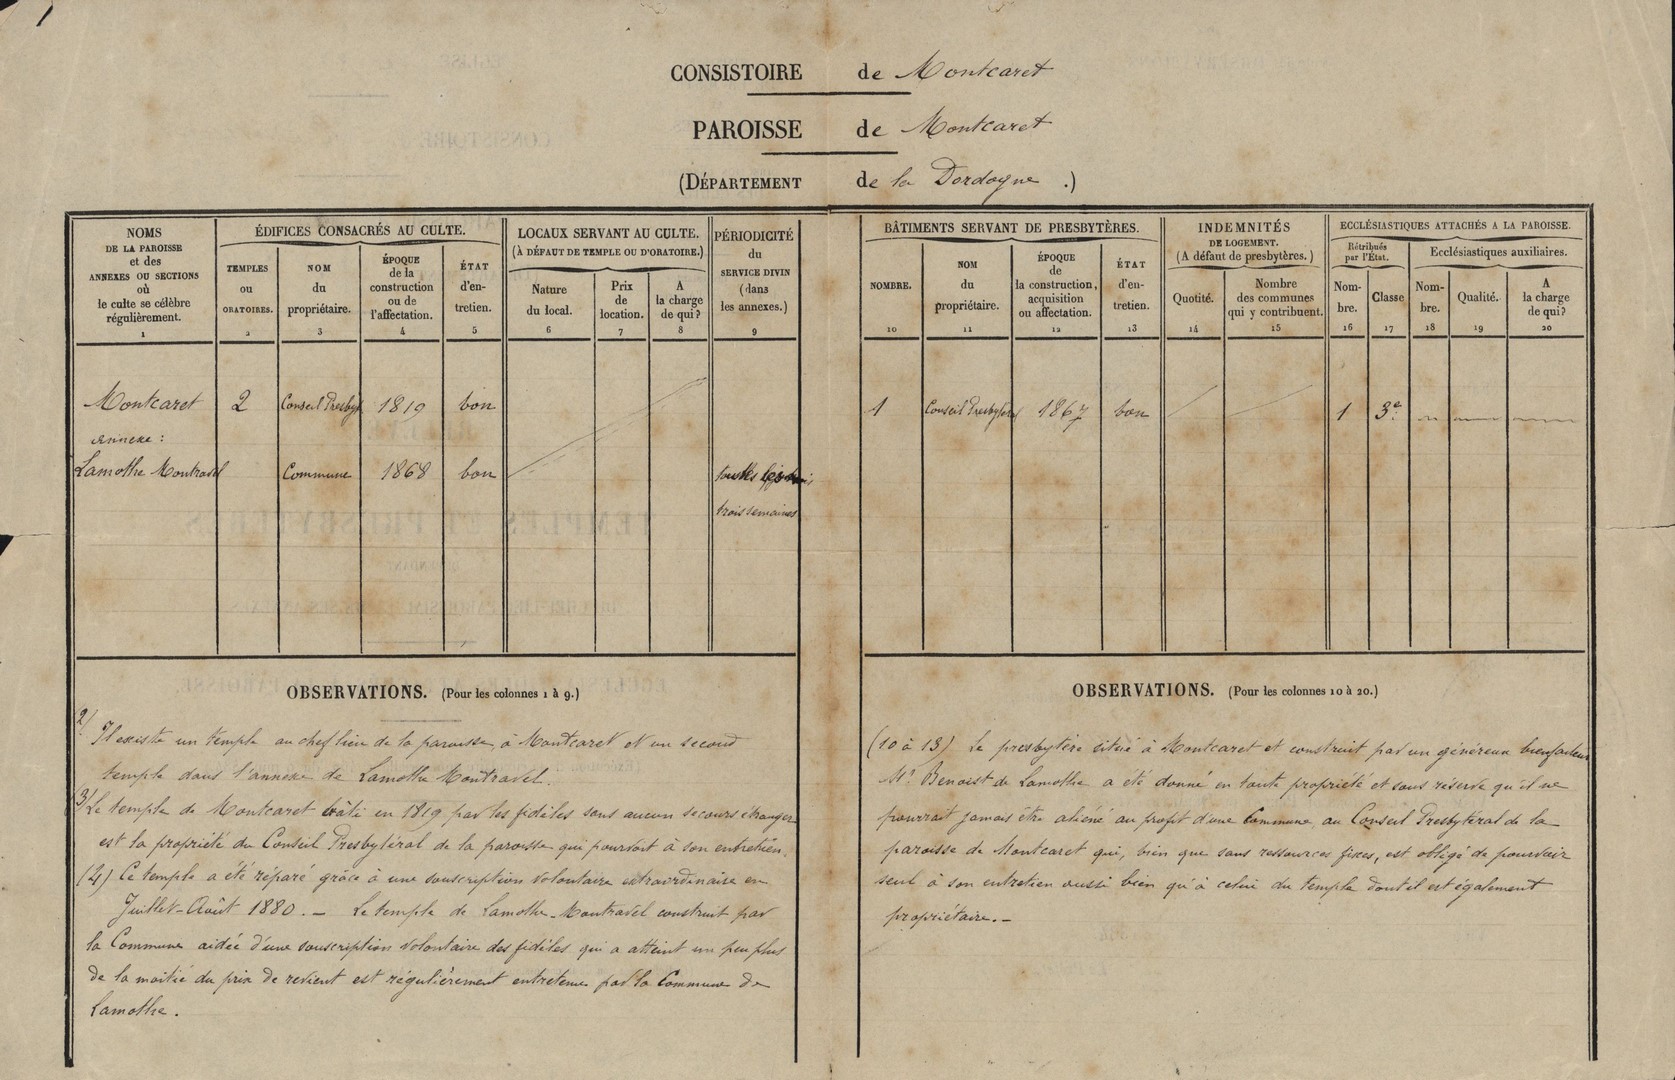 CONSISTOIRE de Montcaret
PAROISSE de Montcaret
(DÉPARTEMENT de la Dordogne .)
NOMS
DE LA PAROISSE
et des
ANNEXES OU SECTIONS
où
le culte se célèbre
régulièrement.
1
ÉDIFICES CONSACRÉS AU CULTE.
TEMPLES
ou
ORATOIRES.
2
NOM
du
propriétaire.
3
ÉPOQUE
de la
construction
ou de
l'affectation.
4
ÉTAT
d'en-
tretien.
5
LOCAUX SERVANT AU CULTE.
(À DÉFAUT DE TEMPLE OU D'ORATOIRE.)
Nature
du local.
6
Prix
de
location.
7
A
la charge
de qui?
8
PÉRIODICITÉ
du
SERVICE DIVIN
(dans
les annexes.)
9
BÂTIMENTS SERVANT DE PRESBYTÈRES.
NOMBRE.
10
NOM
du
propriétaire.
11
ÉPOQUE
de
la construction,
acquisition
ou affectation.
12
ÉTAT
d'en-
tretien.
13
INDEMNITÉS
DE LOGEMENT.
(A défaut de presbytères.)
Quotité.
14
Nombre
des communes
qui y contribuent.
15
ECCLÉSIASTIQUES ATTACHÉS A LA PAROISSE.
Rétribués
par l'État.
Nom-
bre.
16
Classe
17
Ecclésiastiques auxiliaires.
Nom-
bre.
18
Qualité.
19
A
la charge
de qui?
20
Montcaret 2 Conseil Presbyt 1819 bon 1 Conseil Presbytéral 1867 bon 1 3e
Annexe :
Lamothe Montravel Commune 1868 bon toutes les
trois semaines
OBSERVATIONS. (Pour les colonnes 1 à 9.)
2/ Il existe un temple au chef lieu de la paroisse, à Montcaret et un second
temple dans l'annexe de Lamothe Montravel.
(3/ Le temple de Montcaret bâti en 1819 par les fidèles sans aucun secours étranger
est la propriété du Conseil Presbytéral de la paroisse qui pourvoit à son entretien.
(4) Ce temple a été réparé grâce à une souscription volontaire extraordinaire en
Juillet-Août 1880. — Le temple de Lamothe-Montravel construit par
la Commune aidée d'une souscription volontaire des fidèles qui a atteint un peu plus
de la moitié du prix de revient est régulièrement entretenu par la Commune de
Lamothe.
OBSERVATIONS. (Pour les colonnes 10 à 20.)
(10 à 13) Le presbytère situé à Montcaret et construit par un généreux bienfaiteur
Mr Benoist de Lamothe a été donné en toute propriété et sans réserve qu'il ne
pourrait jamais être aliéné au profit d'une Commune, au Conseil Presbytéral de la
paroisse de Montcaret qui, bien que sans ressources fixes, est obligé de pourvoir
seul à son entretien aussi bien qu'à celui du temple dont il est également
propriétaire. —